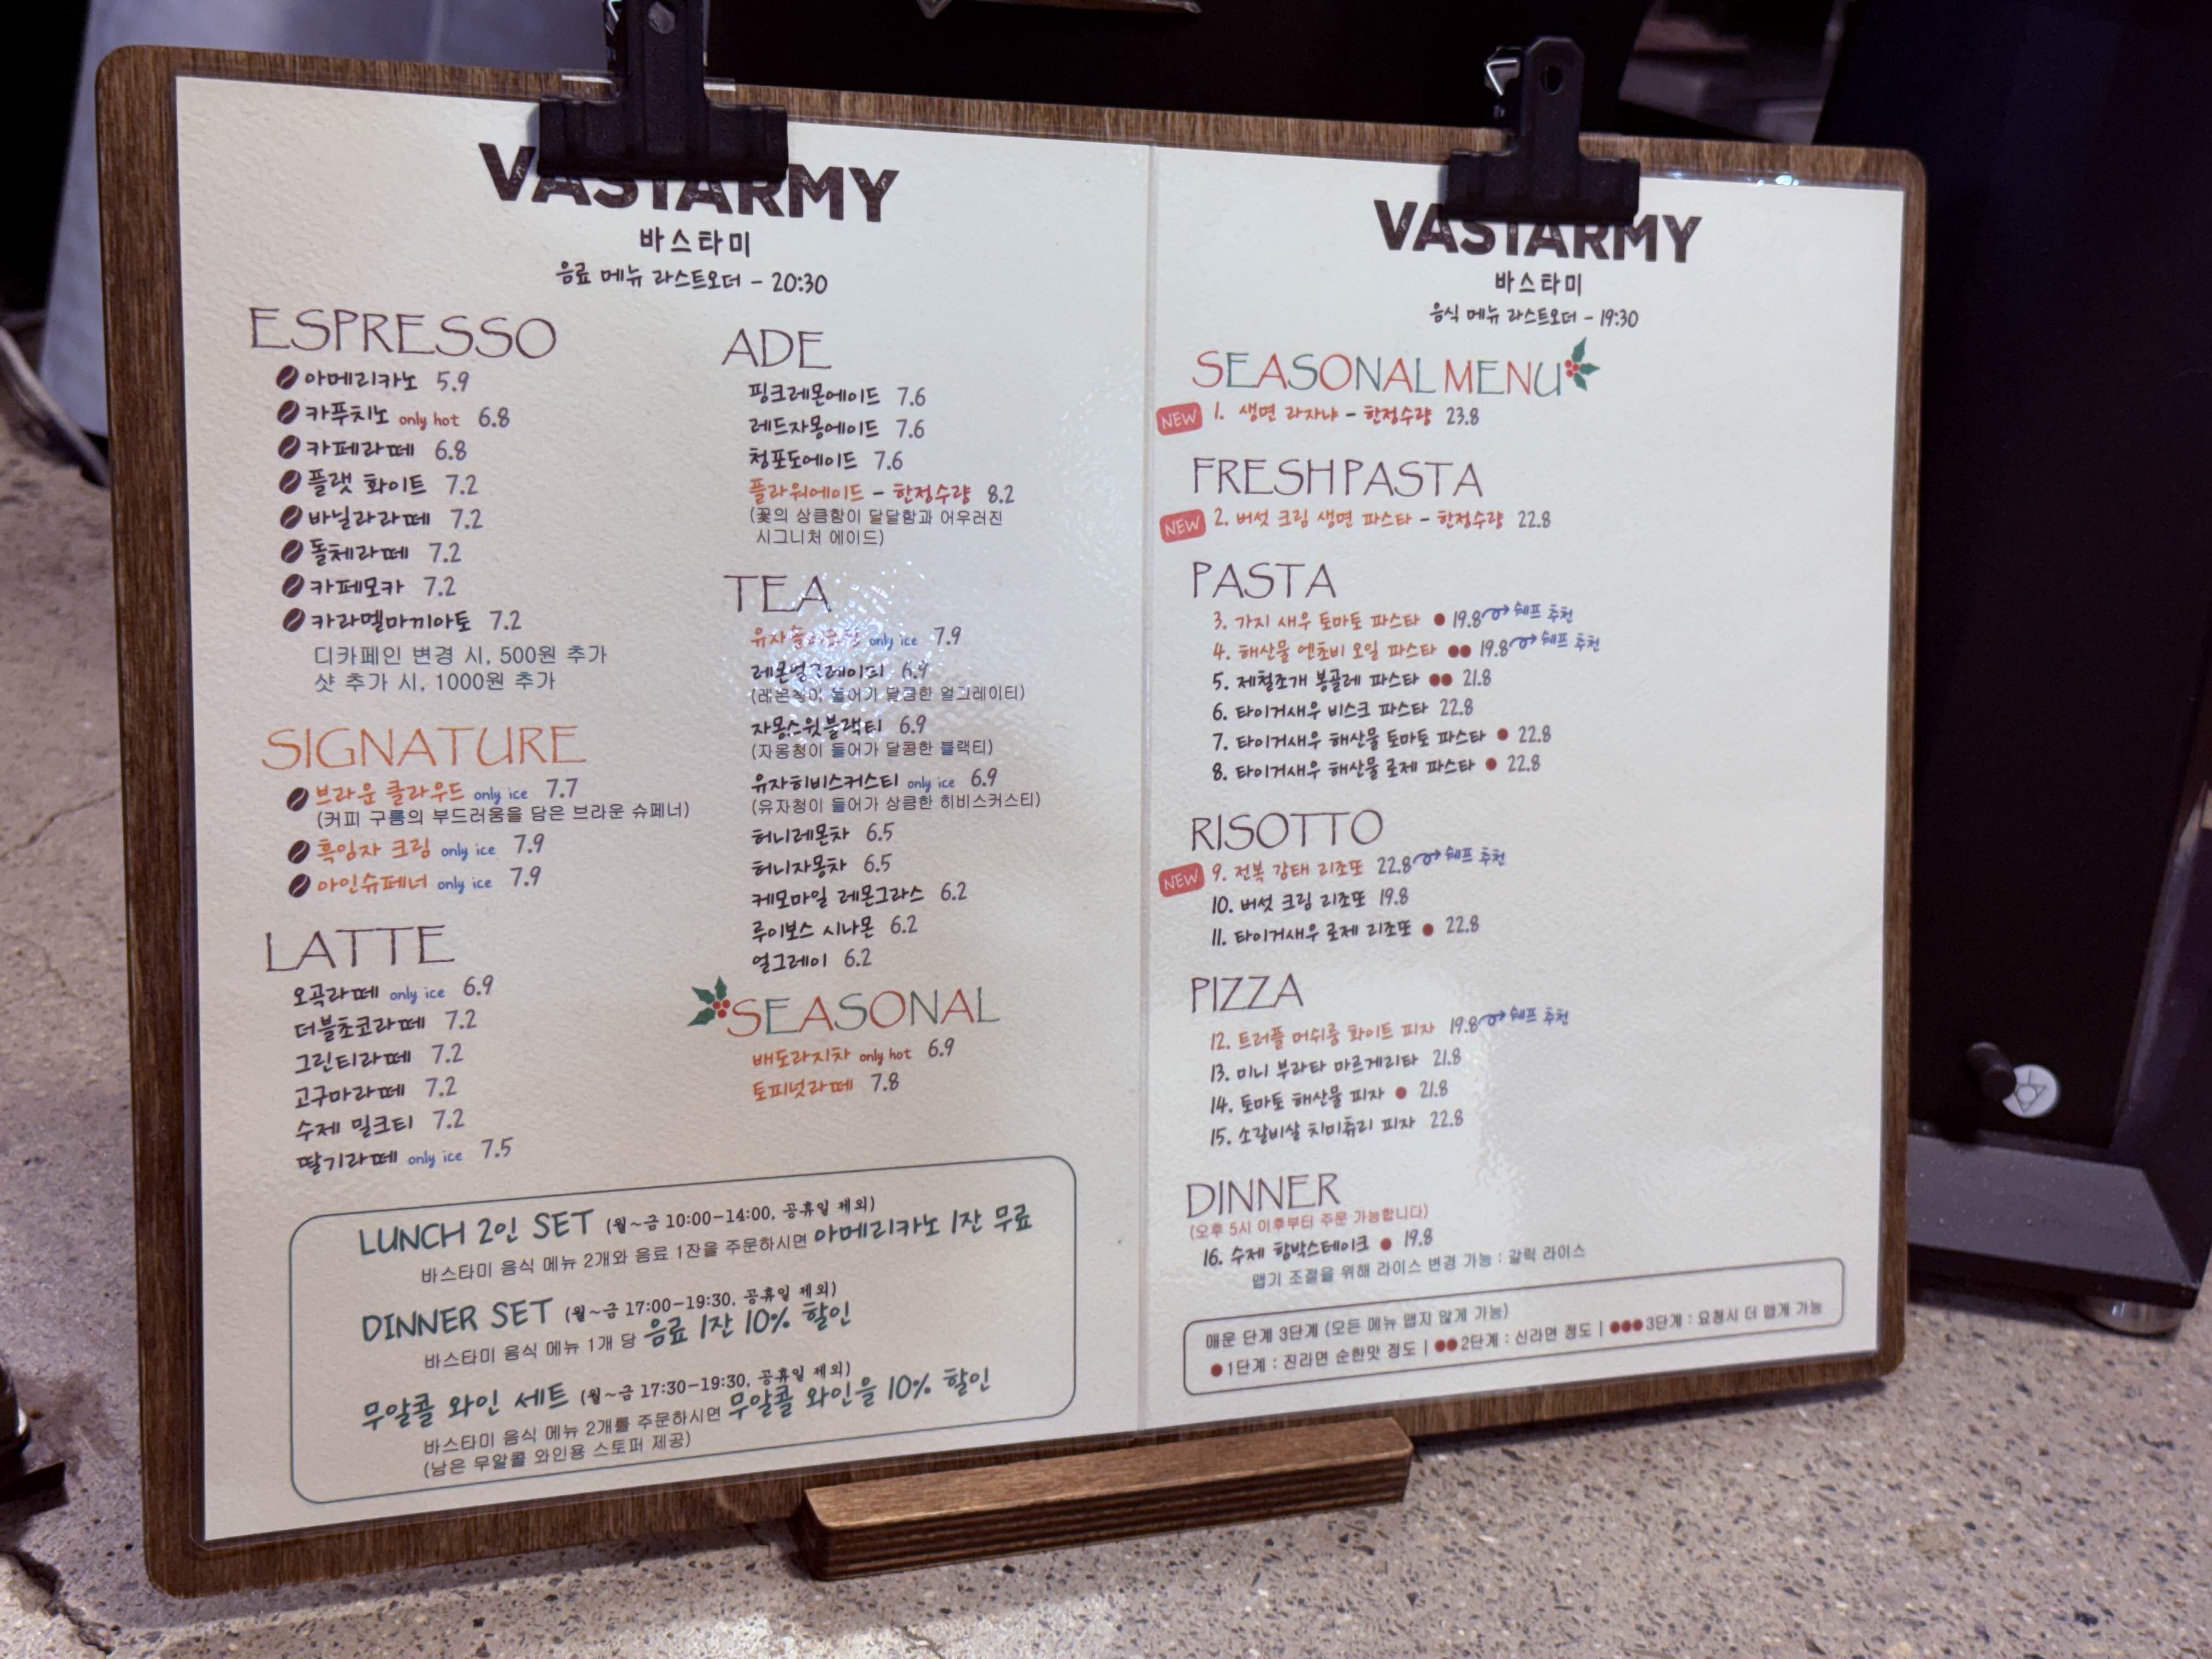 VASTARMY
바스타미
음료 메뉴 라스트오더 - 20:30
ESPRESSO
아메리카노 5.9
카푸치노 only hot 6.8
카페라떼 6.8
플랫 화이트 7.2
바닐라라떼 7.2
돌체라떼 7.2
카페모카 7.2
카라멜마끼아토 7.2
디카페인 변경 시, 500원 추가
샷 추가 시, 1000원 추가
SIGNATURE
브라운 클라우드 only ice 7.7
(커피 구름의 부드러움을 담은 브라운 슈페너)
흑임자 크림 only ice 7.9
아인슈페너 only ice 7.9
LATTE
오곡라떼 only ice 6.9
더블초코라떼 7.2
그린티라떼 7.2
고구마라떼 7.2
수제 밀크티 7.2
딸기라떼 only ice 7.5
ADE
핑크레몬에이드 7.6
레드자몽에이드 7.6
청포도에이드 7.6
플라워에이드 - 한정수량 8.2
(꽃의 상큼함이 달달함과 어우러진
시그니처 에이드)
TEA
only ice 7.9
레몬얼그레이티 6.9
(레몬청이 들어가 달콤한 얼그레이티)
자몽스윗블랙티 6.9
(자몽청이 들어가 달콤한 블랙티)
유자히비스커스티 only ice 6.9
(유자청이 들어가 상큼한 히비스커스티)
허니레몬차 6.5
허니자몽차 6.5
케모마일 레몬그라스 6.2
루이보스 시나몬 6.2
얼그레이 6.2
SEASONAL
배도라지차 only hot 6.9
토피넛라떼 7.8
LUNCH 2인 SET (월~금 10:00-14:00, 공휴일 제외)
바스타미 음식 메뉴 2개와 음료 1잔을 주문하시면 아메리카노 1잔 무료
DINNER SET (월~금 17:00-19:30, 공휴일 제외)
바스타미 음식 메뉴 1개 당 음료 1잔 10% 할인
무알콜 와인 세트 (월~금 17:30-19:30, 공휴일 제외)
바스타미 음식 메뉴 2개를 주문하시면 무알콜 와인을 10% 할인
(남은 무알콜 와인용 스토퍼 제공)
VASTARMY
바스타미
음식 메뉴 라스트오더 - 19:30
SEASONAL MENU
NEW 1. 생면 라자냐 - 한정수량 23.8
FRESH PASTA
NEW 2. 버섯 크림 생면 파스타 - 한정수량 22.8
PASTA
3. 가지 새우 토마토 파스타 ● 19.8 쉐프 추천
4. 해산물 엔초비 오일 파스타 ●● 19.8 쉐프 추천
5. 제철조개 봉골레 파스타 ●● 21.8
6. 타이거새우 비스크 파스타 22.8
7. 타이거새우 해산물 토마토 파스타 ● 22.8
8. 타이거새우 해산물 로제 파스타 ● 22.8
RISOTTO
NEW 9. 전복 감태 리조또 22.8 쉐프 추천
10. 버섯 크림 리조또 19.8
11. 타이거새우 로제 리조또 ● 22.8
PIZZA
12. 트러플 머쉬룸 화이트 피자 19.8 쉐프 추천
13. 미니 부라타 마르게리타 21.8
14. 토마토 해산물 피자 ● 21.8
15. 소갈비살 치미츄리 피자 22.8
DINNER
(오후 5시 이후부터 주문 가능합니다)
16. 수제 함박스테이크 ● 19.8
맵기 조절을 위해 라이스 변경 가능 : 갈릭 라이스
매운 단계 3단계 (모든 메뉴 맵지 않게 가능)
●1단계 : 진라면 순한맛 정도 | ●●2단계 : 신라면 정도 | ●●●3단계 : 요청시 더 맵게 가능